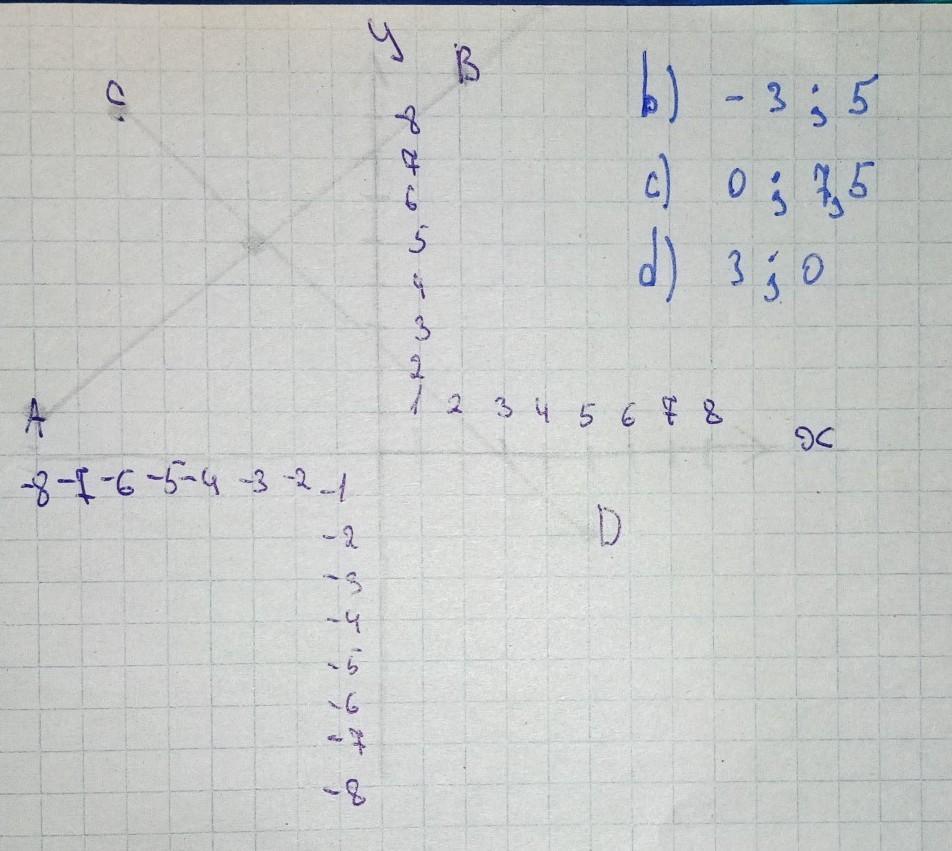 y
B
C
8
7
6
5
4
3
2
A
1 2 3 4 5 6 7 8
x
-8 -7 -6 -5 -4 -3 -2 -1
D
-2
-3
-4
-5
-6
-7
-8
b) -3 ; 5
c) 0 ; 7,5
d) 3 ; 0